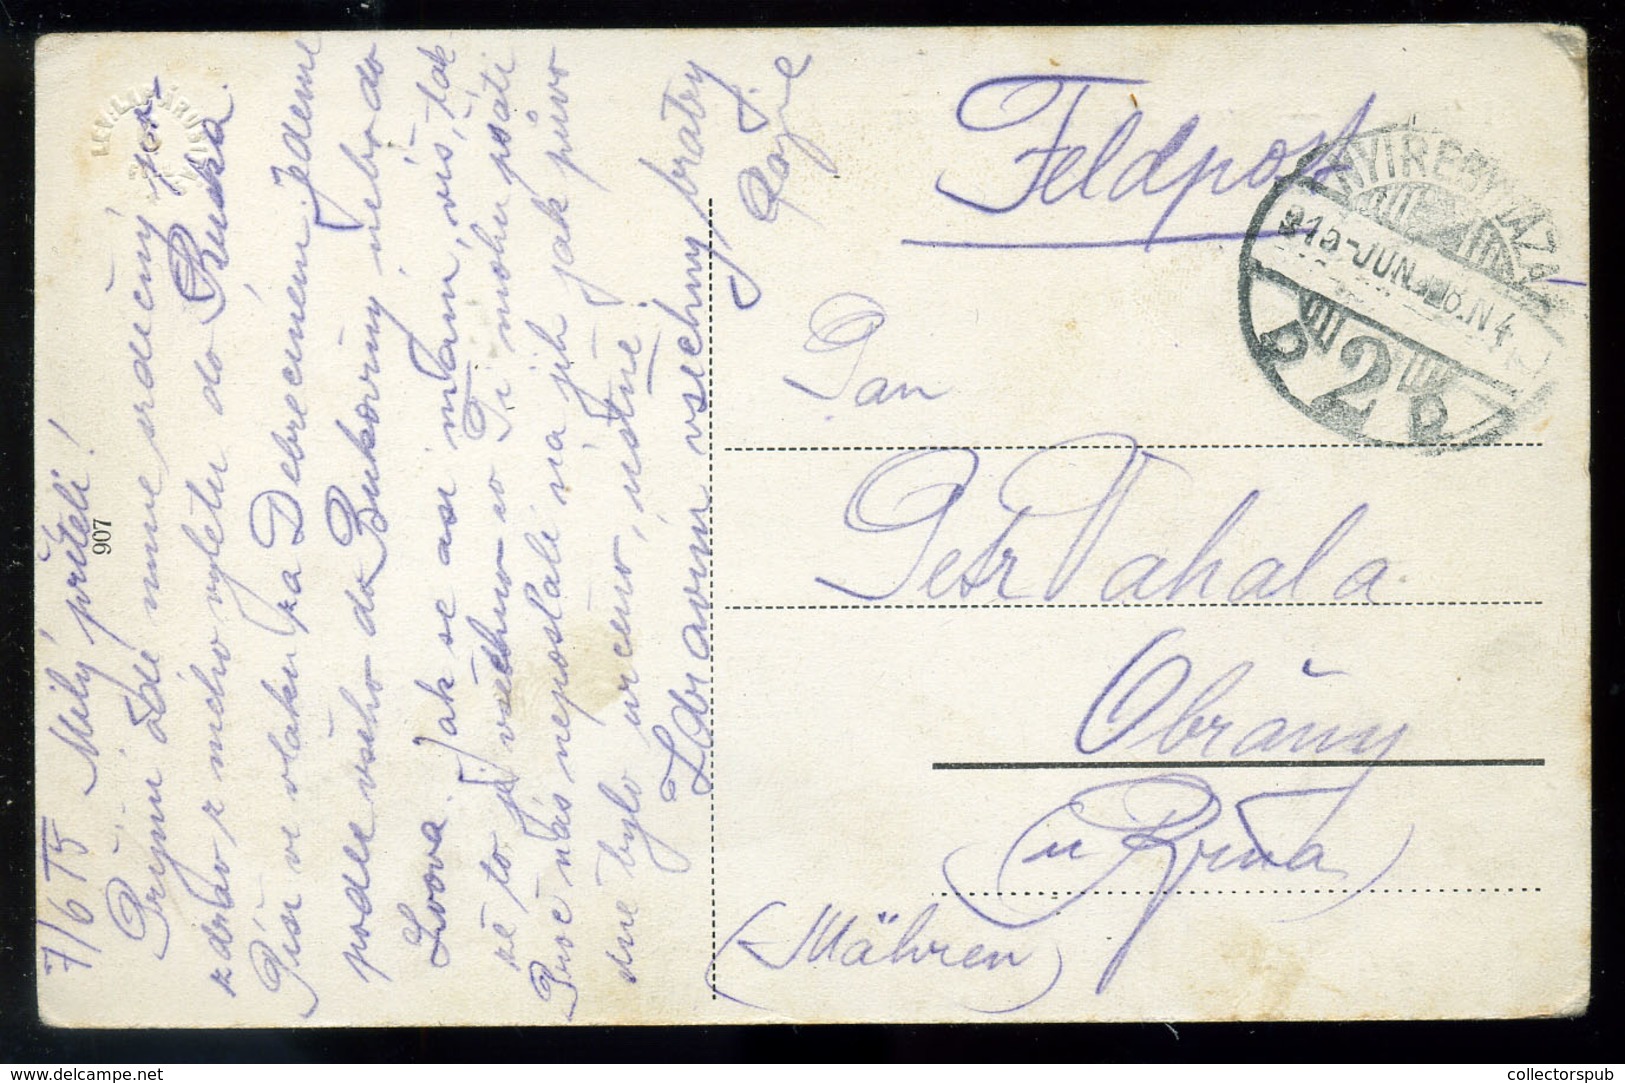 7/6 15 Milý příteli!
Přijmi ode mne srdečný poz-
zdrav z mého výletu do Ruska.
Píši ve vlaku za Debrecínem. Jedeme
podle všeho do Bukoviny nebo do
Lvova. Jak se asi mám, víš, tak
že to již všechno Ti mohu psáti
Proč nás neposlali na jih jak původ
ně bylo určeno, ústně!
Zdravím všechny bratry
907
Feldpost
NYIREGYHÁZA
915 JUN. N4
2
Pan
Petr Vahala
Obřany
(u Brna)
(Mähren)
www.delcampe.net
collectorspub